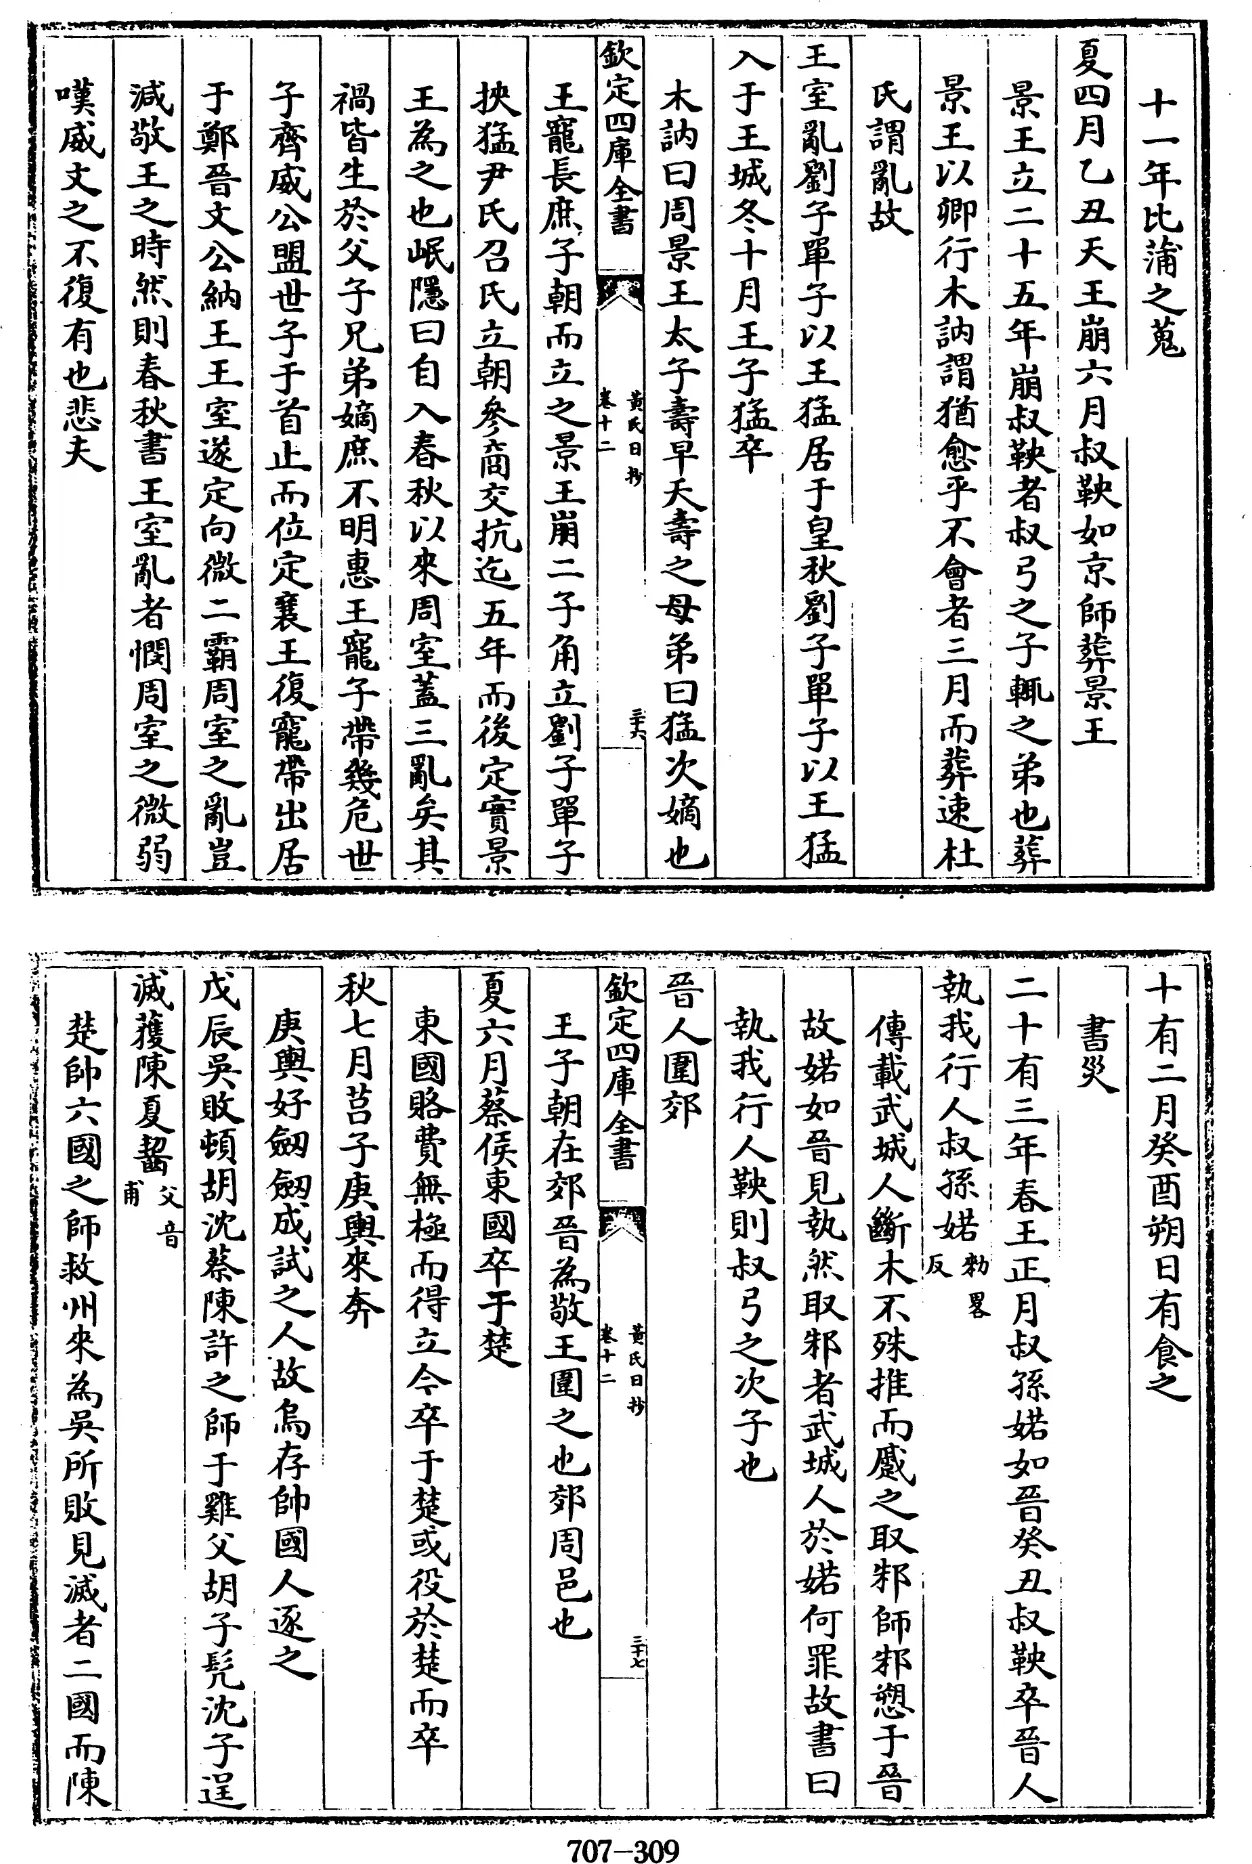 十一年比蒲之蒐
夏四月乙丑天王崩六月叔鞅如京師葬景王
景王立二十五年崩叔鞅者叔弓之子輒之弟也葬
景王以卿行木訥謂猶愈乎不會者三月而葬速杜
氏謂亂故
王室亂劉子單子以王猛居于皇秋劉子單子以王猛
入于王城冬十月王子猛卒
木訥曰周景王太子壽早夭壽之母弟曰猛次嫡也
欽定四庫全書
黃氏日抄
卷十二
三十六
王寵長庶子朝而立之景王崩二子角立劉子單子
挾猛尹氏召氏立朝參商交抗迄五年而後定實景
王為之也岷隱曰自入春秋以來周室蓋三亂矣其
禍皆生於父子兄弟嫡庶不明惠王寵子帶幾危世
子齊威公盟世子于首止而位定襄王復寵帶出居
于鄭晉文公納王王室遂定向微二霸周室之亂豈
減敬王之時然則春秋書王室亂者憫周室之微弱
嘆威文之不復有也悲夫
十有二月癸酉朔日有食之
書災
二十有三年春王正月叔孫婼如晉癸丑叔鞅卒晉人
執我行人叔孫婼敕畧反
傳載武城人斷木不殊推而蹷之取邾師邾愬于晉
故婼如晉見執然取邾者武城人於婼何罪故書曰
執我行人鞅則叔弓之次子也
晉人圍郊
欽定四庫全書
黃氏日抄
卷十二
三十七
王子朝在郊晉為敬王圍之也郊周邑也
夏六月蔡侯東國卒于楚
東國賂費無極而得立今卒于楚或役於楚而卒
秋七月莒子庚輿來奔
庚輿好劒劒成試之人故烏存帥國人逐之
戊辰吳敗頓胡沈蔡陳許之師于雞父胡子髠沈子逞
滅獲陳夏齧父音甫
楚帥六國之師救州來為吳所敗見滅者二國而陳
707-309